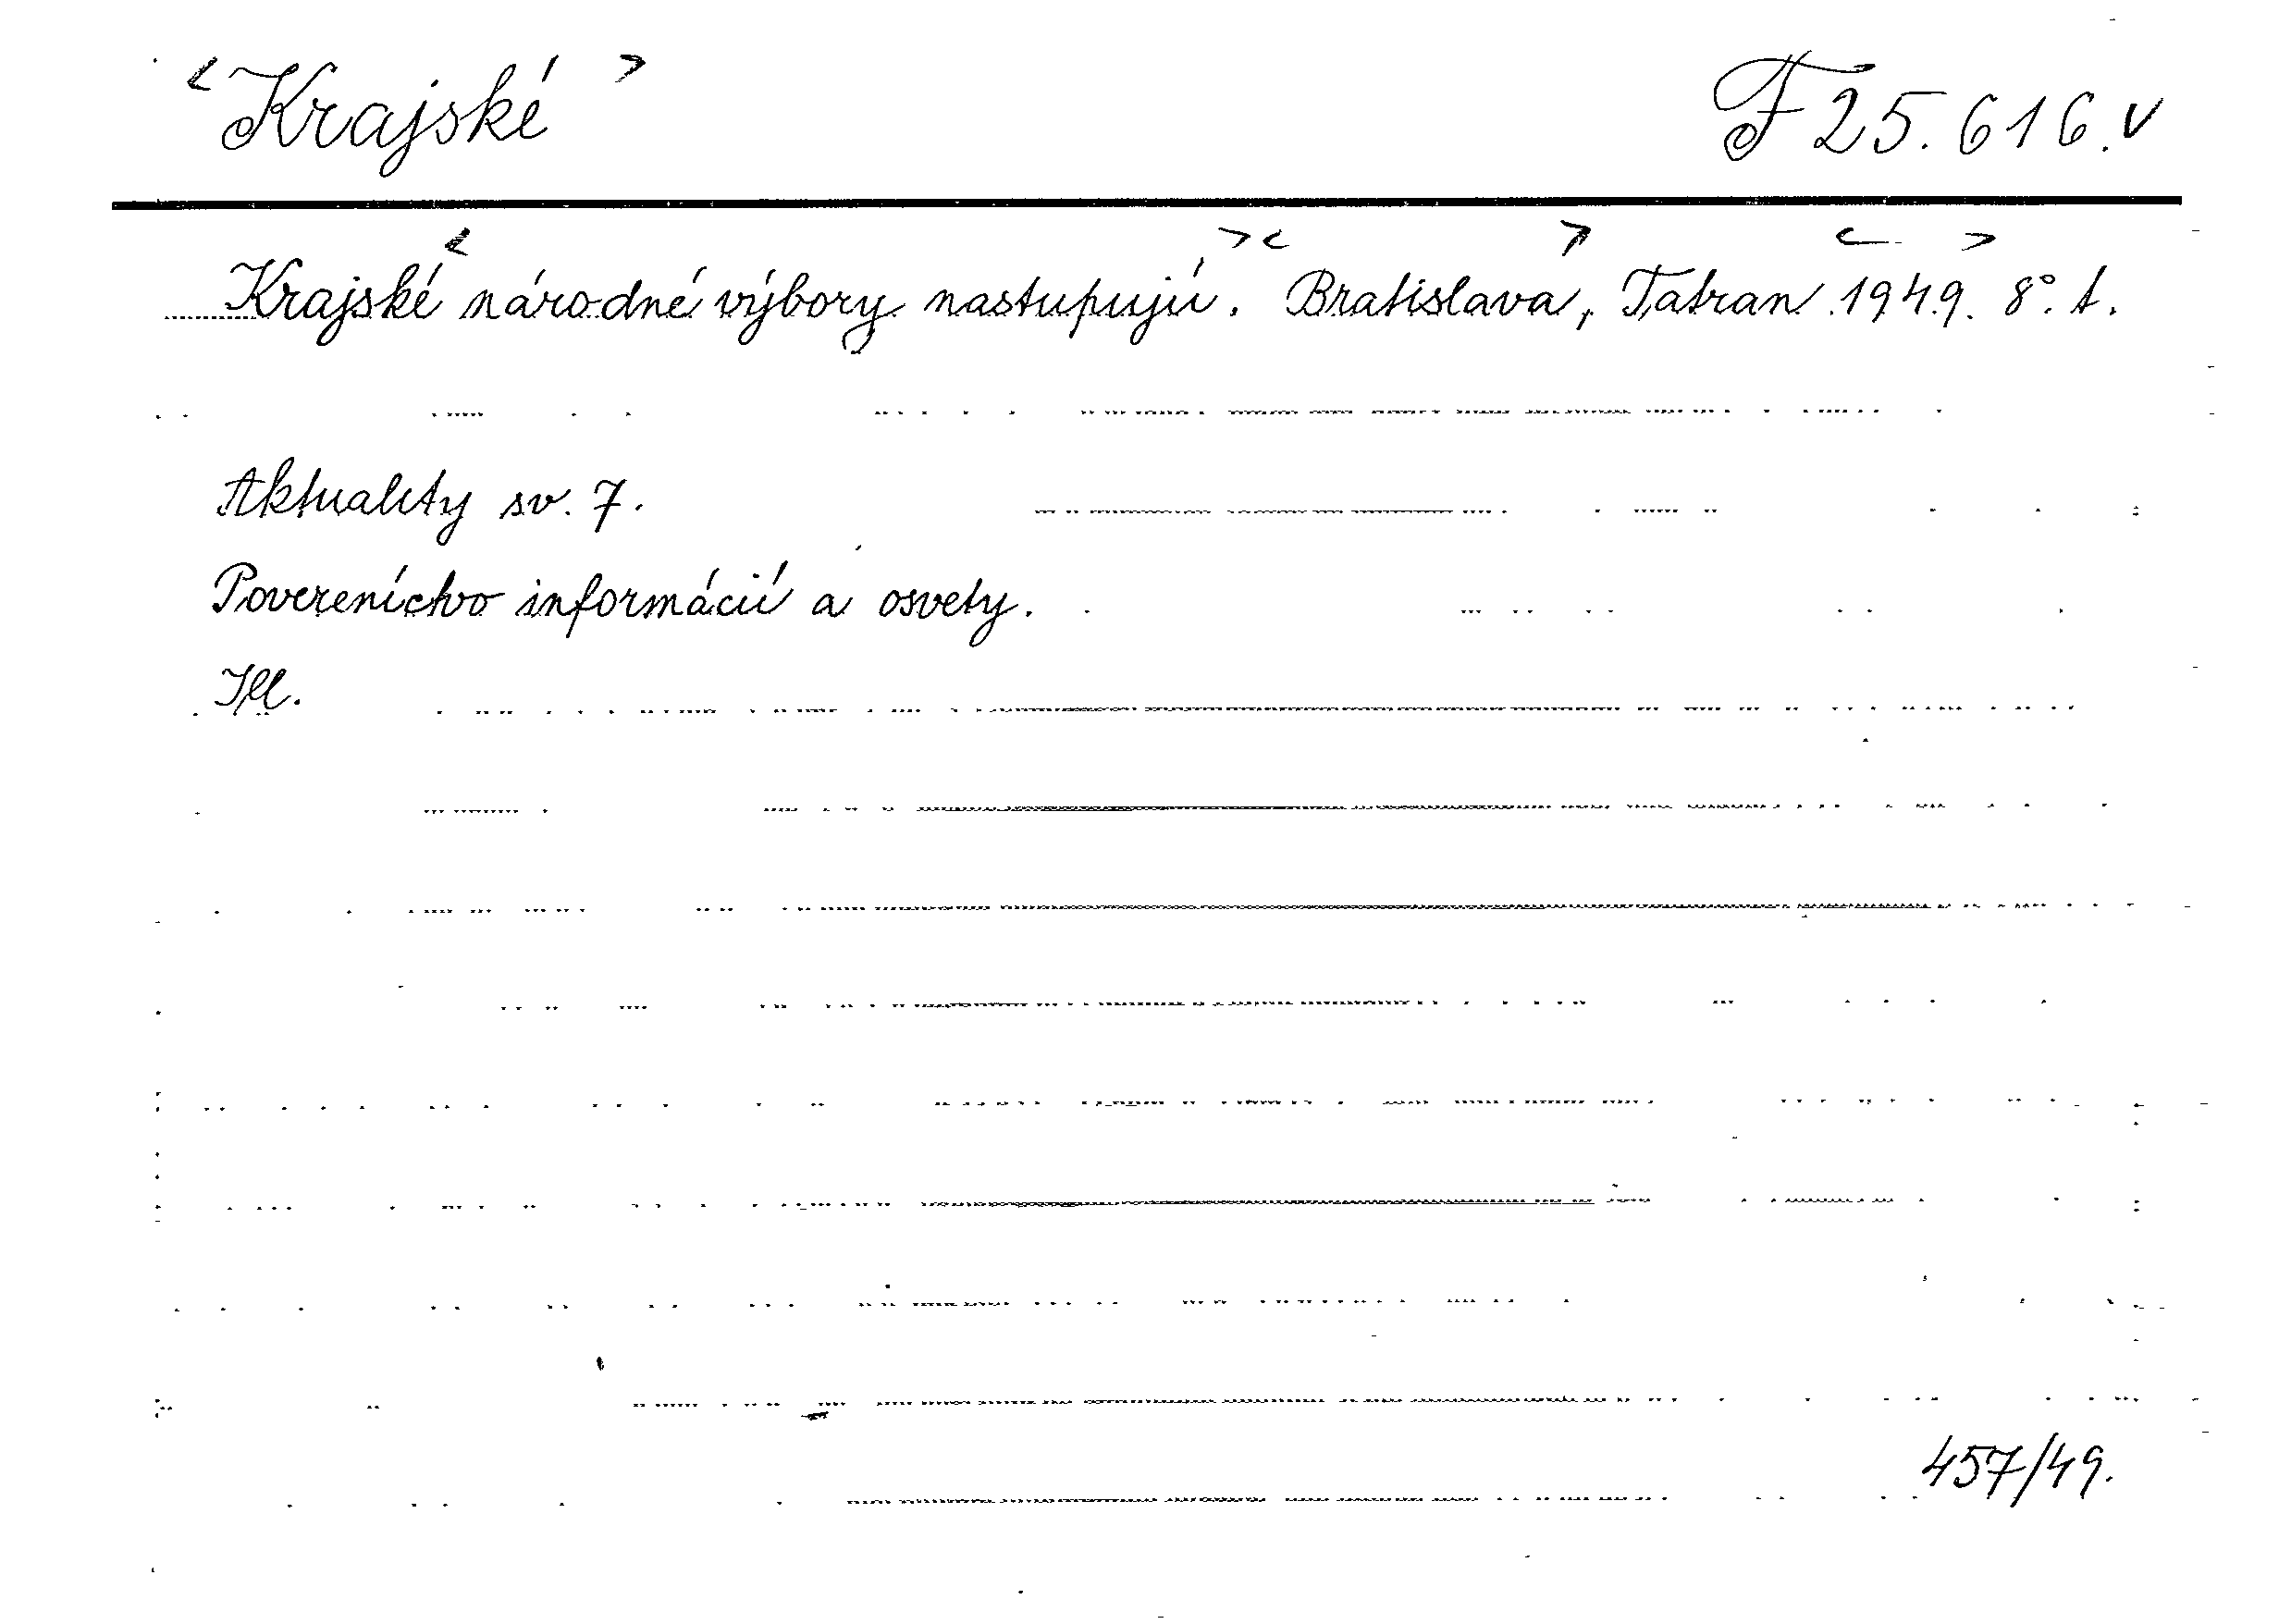 <Krajské> F 25.616.v
Krajské <národné výbory nastupujú. >< Bratislava, > Tatran <1949.> 8°. t.
Aktuality sv. 7.
Povereníctvo informácií a osvety.
Ill.
457/49.